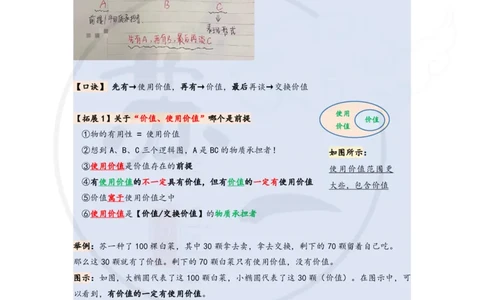 A B C
先有A,再有B,最后再谈C
【口诀】 先有→使用价值,再有→价值,最后再谈→交换价值
【拓展1】关于“价值、使用价值”哪个是前提
①物的有用性 = 使用价值
②想到A、B、C三个逻辑图,A是BC的物质承担者!
③使用价值是价值存在的前提
④有使用价值的不一定具有价值,但有价值的一定有使用价值
⑤价值寓于使用价值之中
⑥使用价值是【价值/交换价值】的物质承担者
使用
价值
价值
如图所示:
使用价值范围更
大些,包含价值
举例:苏一种了100棵白菜,其中30颗拿去卖,拿去交换,剩下的70颗留着自己吃。
那么这30颗就有了价值。剩下的70颗白菜只有使用价值,没有价值。
图示:如图,大椭圆代表了这100颗白菜,小椭圆代表了这30颗(价值)。在图示中,可
以看到,有价值的一定有使用价值。